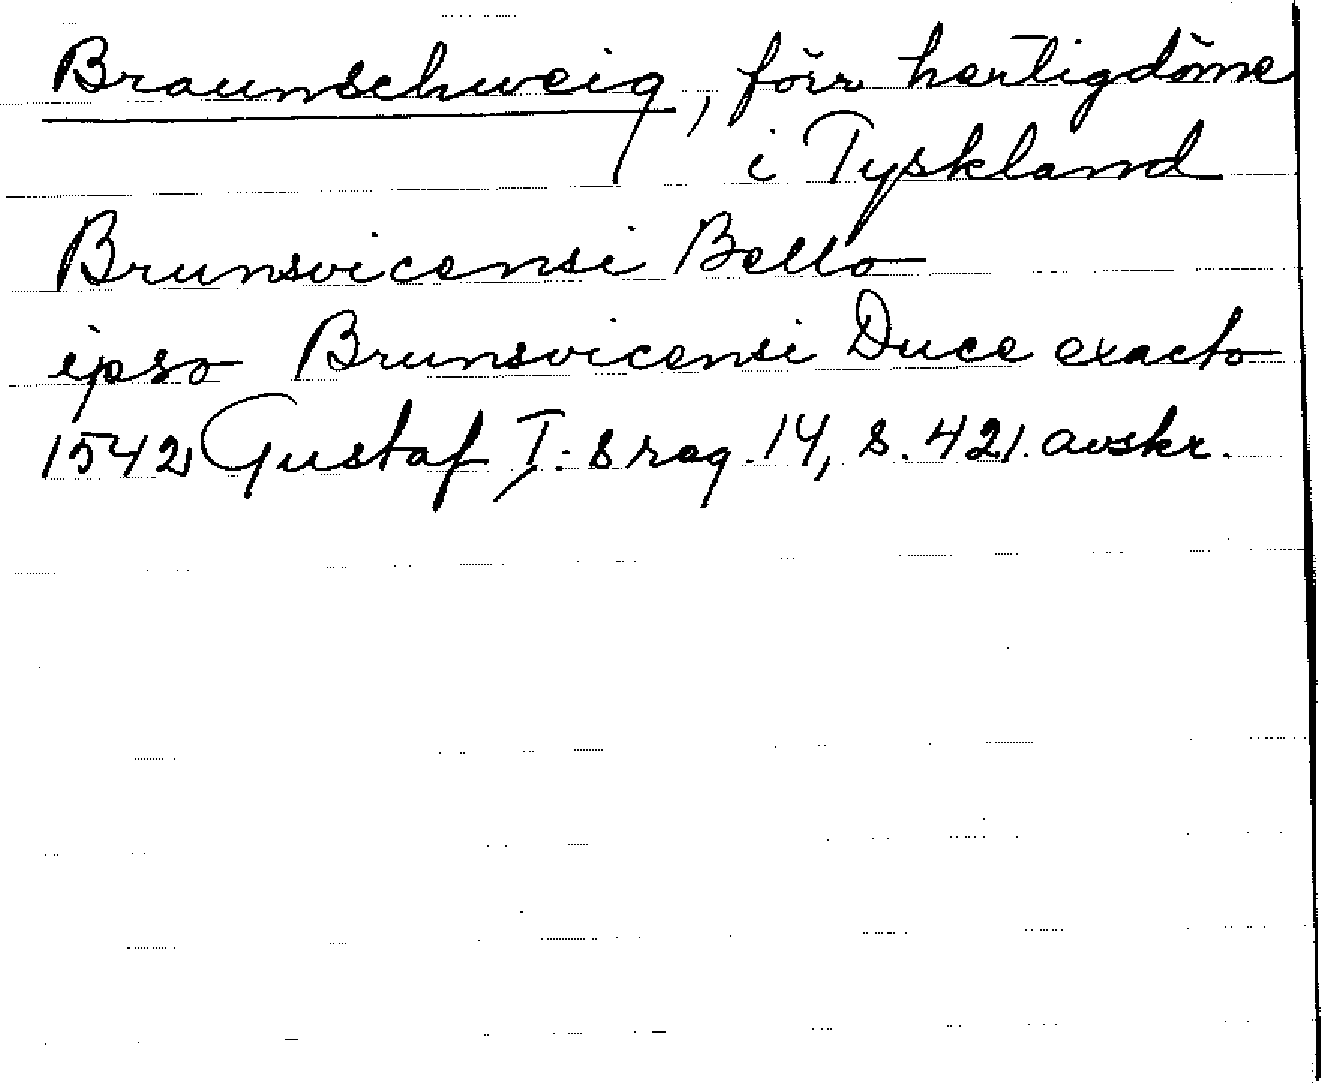 Braunschweig, förr hertigdöme
i Tyskland
Brunsvicensi Bello
ipso Brunsvicensi Duce exacto
1542 Gustaf I:s reg. 14, s. 421. avskr.